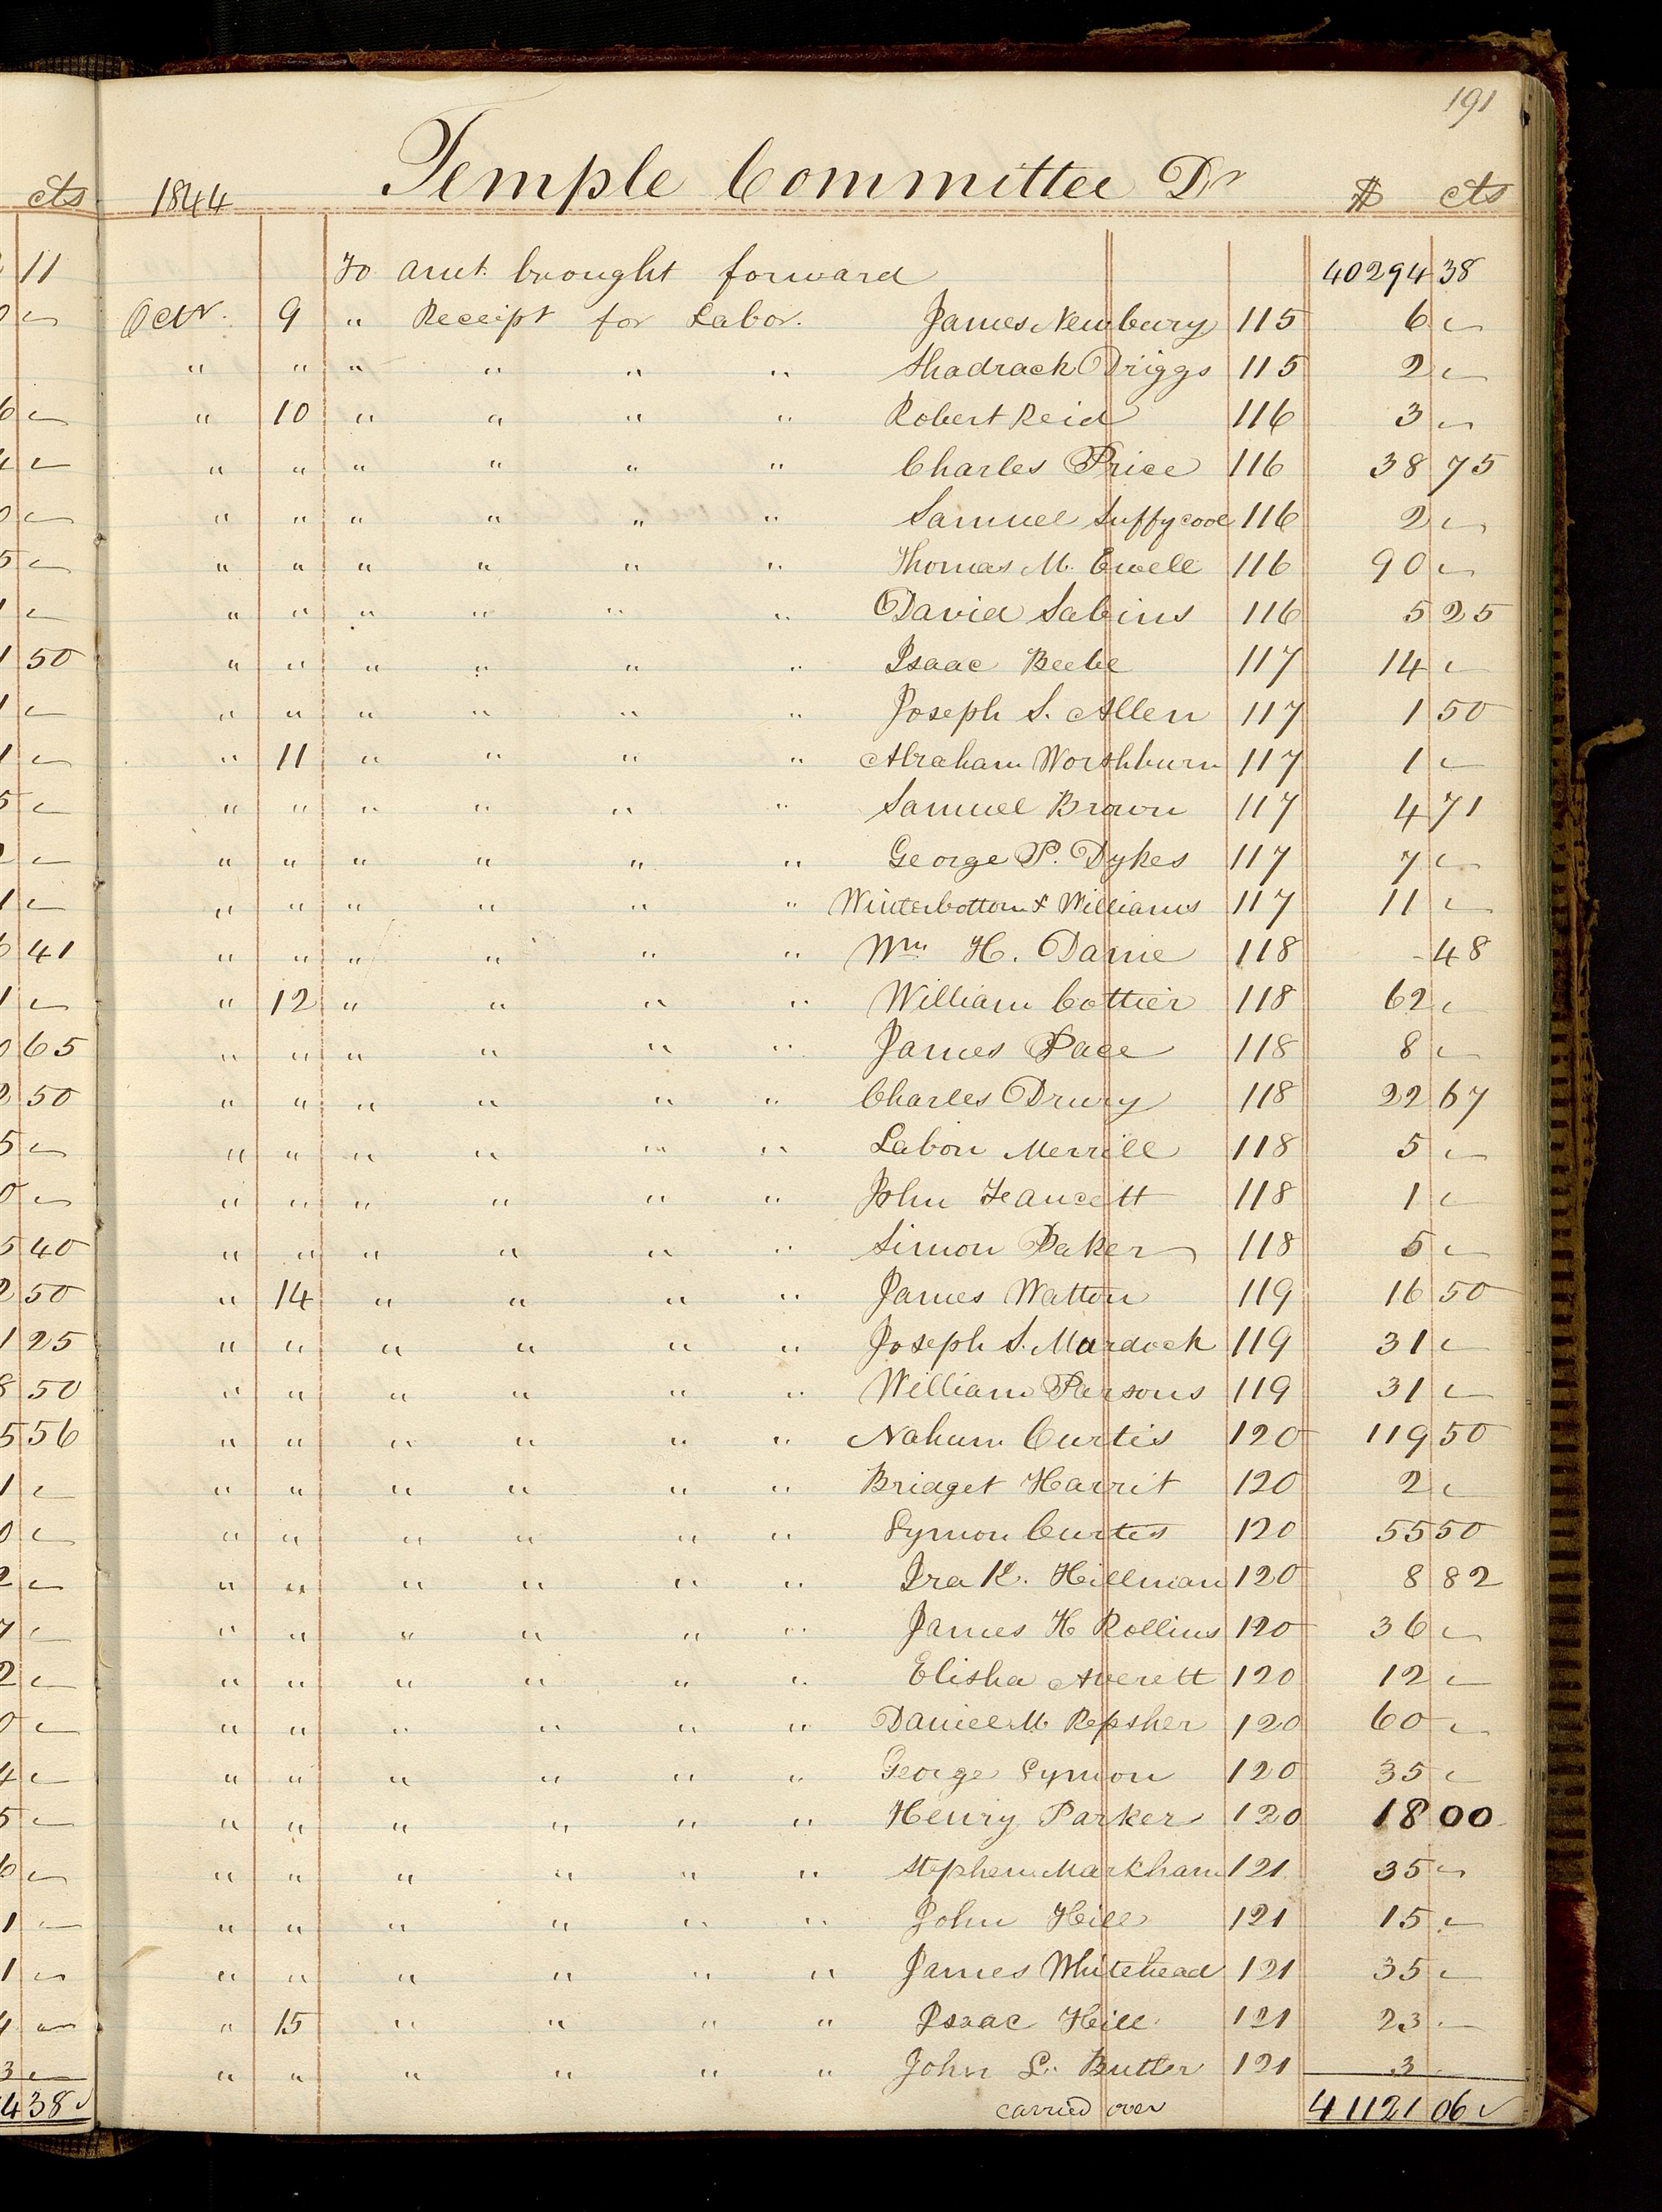 191
cts 1844 Temple Committee Dr $ cts
11 To amt. brought forward 40294 38
Octr. 9 " Receipt for Labor. James Newbury 115 6 "
" " " " " " Shadrack Driggs 115 2 "
" 10 " " " " Robert Reid 116 3 "
" " " " " " Charles Price 116 38 75
" " " " " " Samuel Suffycool 116 2 "
" " " " " " Thomas M. Ewell 116 90 "
" " " " " " David Sabins 116 5 25
50 " " " " " " Isaac Beebe 117 14 "
" " " " " " Joseph S. Allen 117 1 50
" 11 " " " " Abraham Worshburn 117 1 "
" " " " " " Samuel Brown 117 4 71
" " " " " " George P. Dykes 117 7 "
" " " " " " Winterbottom & Williams 117 11 "
41 " " " " " " Wm. H. Dame 118 - 48
" 12 " " " " William Cottier 118 62 "
65 " " " " " " James Pace 118 8 "
50 " " " " " " Charles Drury 118 22 67
" " " " " " Labon Merrill 118 5 "
" " " " " " John Feaucett 118 1 "
40 " " " " " " Simon Baker 118 5 "
50 " 14 " " " " James Watton 119 16 50
25 " " " " " " Joseph S. Murdock 119 31 "
50 " " " " " " William Parsons 119 31 "
56 " " " " " " Nahum Curtis 120 119 50
" " " " " " Bridget Harrit 120 2 "
" " " " " " Lymon Curtis 120 55 50
" " " " " " Ira K. Hillman 120 8 82
" " " " " " James H Rollins 120 36 "
" " " " " " Elisha Averett 120 12 "
" " " " " " Daniel M. Repsher 120 60 "
" " " " " " George Lymon 120 35 "
" " " " " " Henry Parker 120 18 00
" " " " " " Stephen Markham 121 35 "
" " " " " " John Hill 121 15 "
" " " " " " James Whitehead 121 35 "
" 15 " " " " Isaac Hill 121 23 "
" " " " " " John L. Butler 121 3 "
438 carried over 41121 06